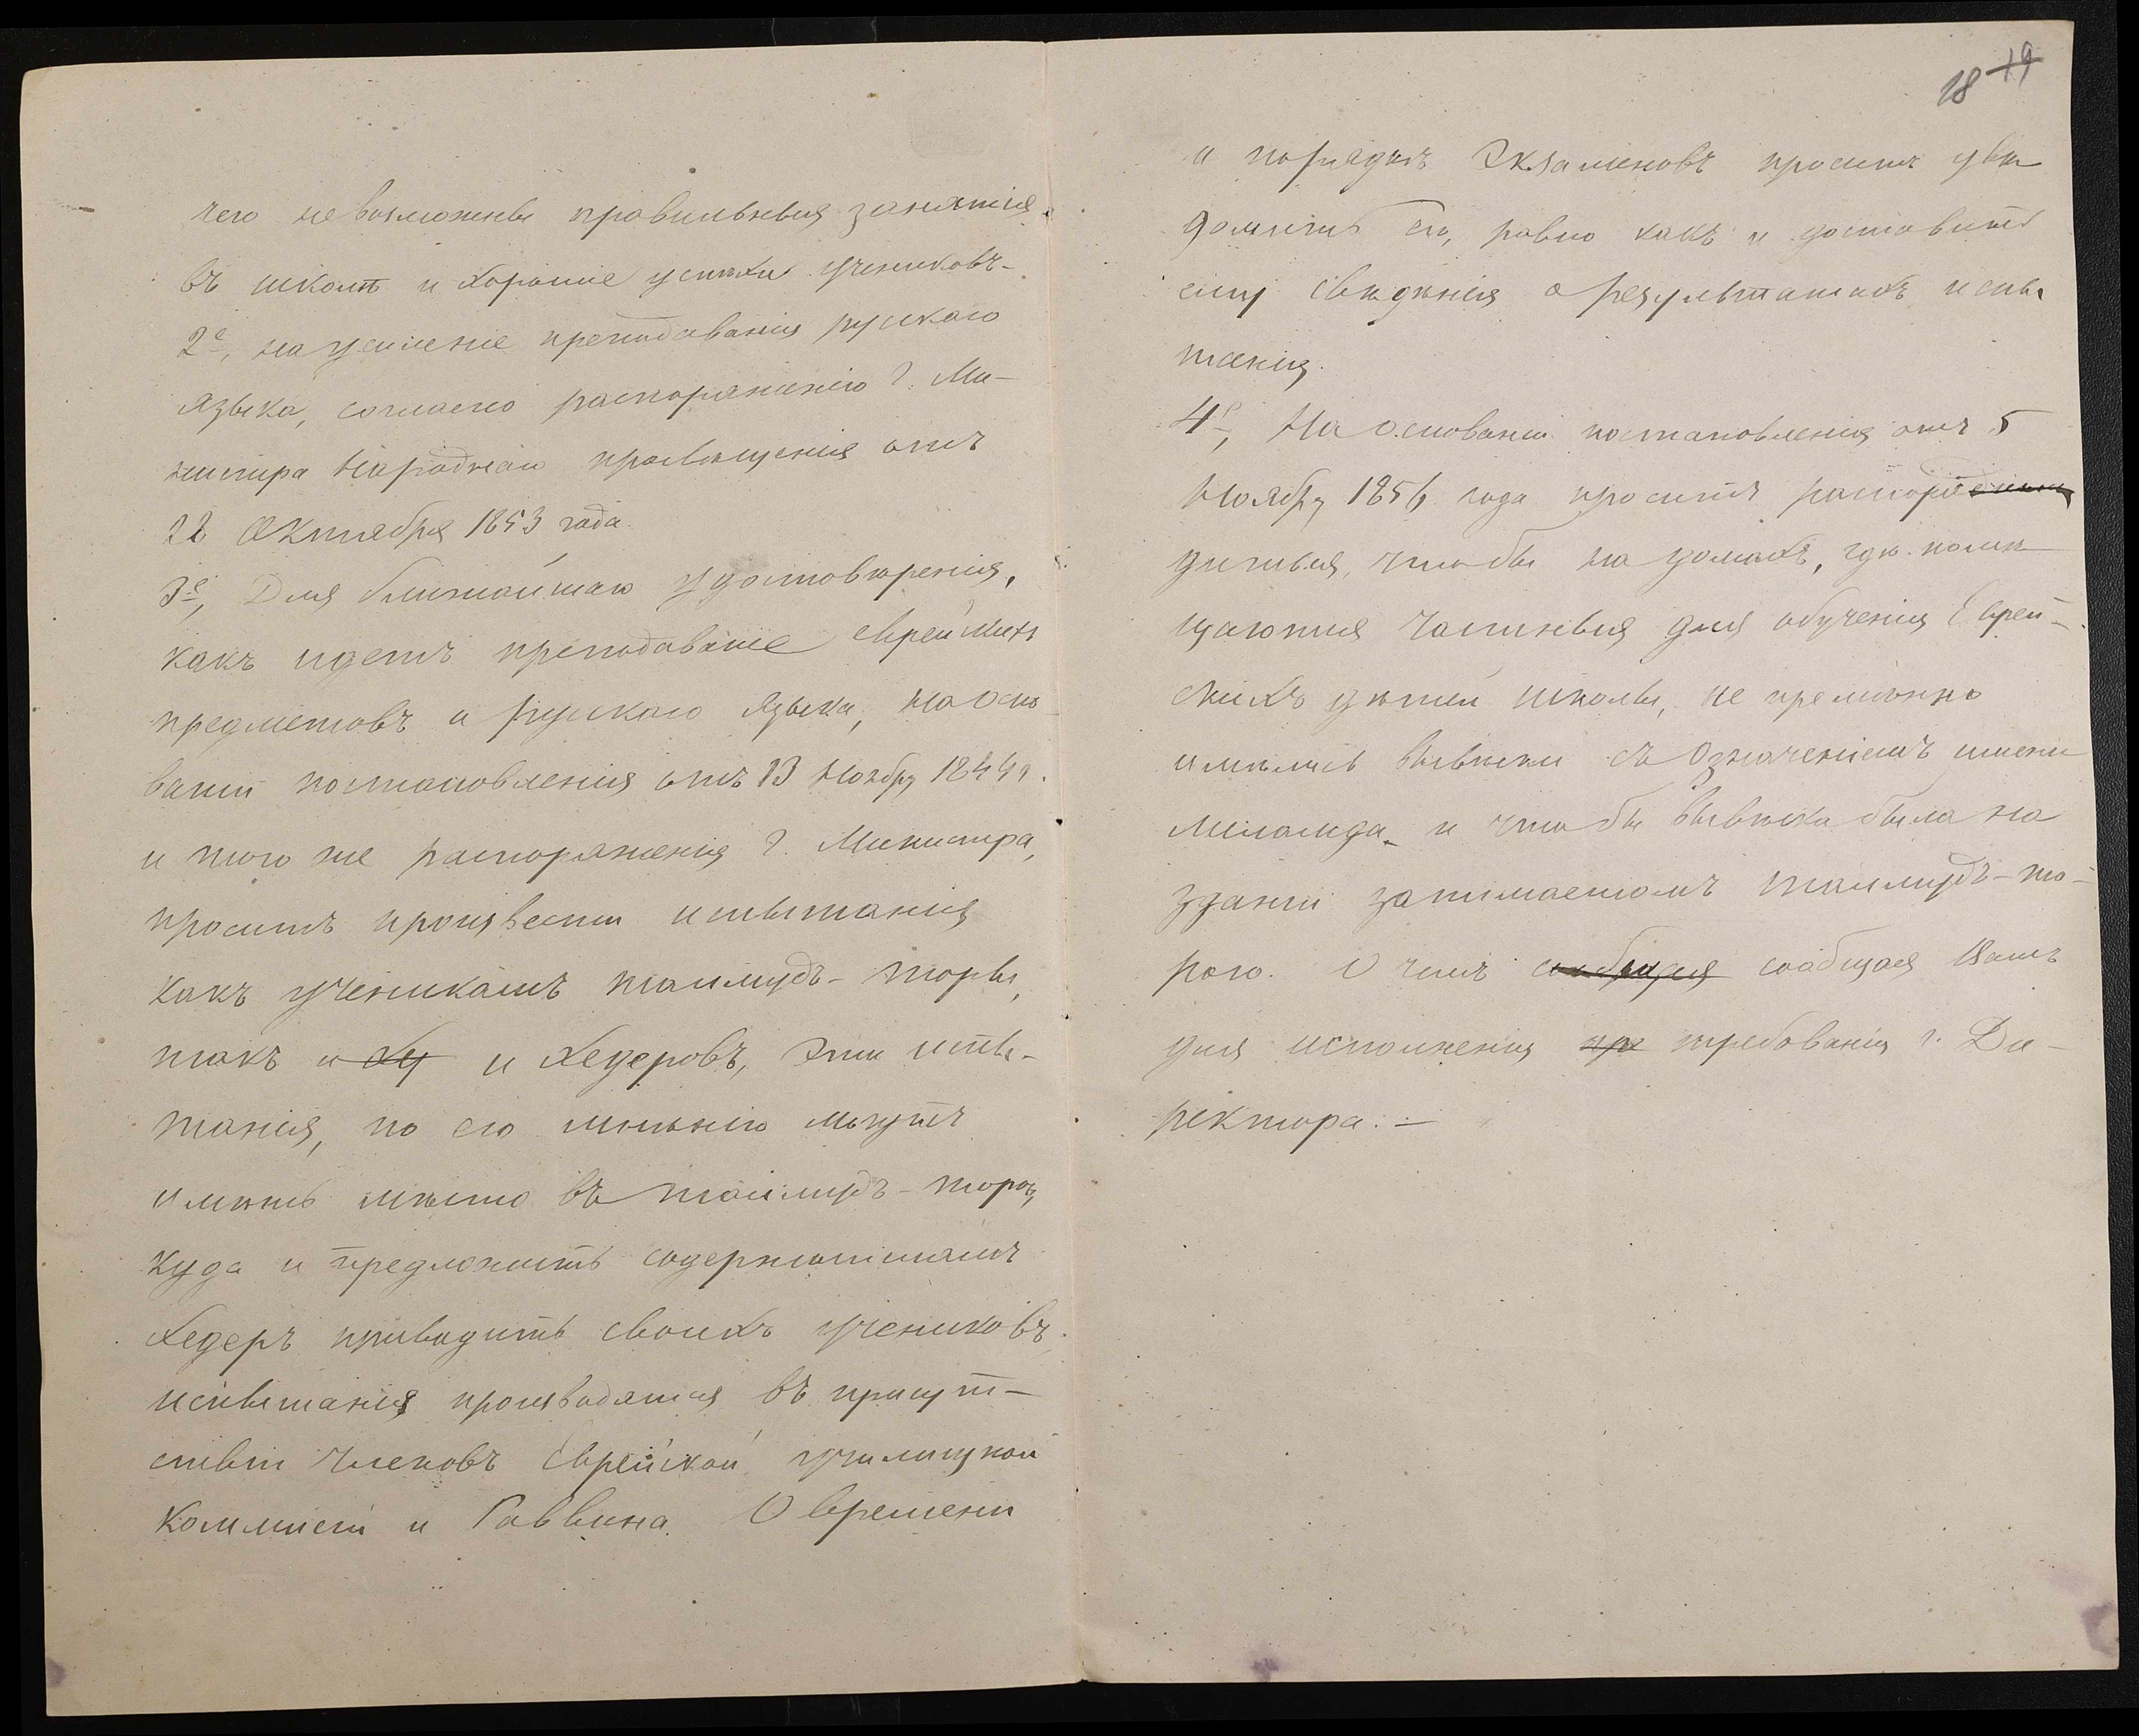 чего не возможны правильныя занятія
въ школѣ и хорошіе успѣхи учениковъ-
2е, на усиленіе преподаванія рускаго
языка, согласно распоряженію Г. Ми-
нистра Народнаго просвѣщенія отъ
22 Октября 1853 года.
3е, Для ближайшаго удостовѣренія,
какъ идетъ преподаваніе еврейскихъ
предметовъ и рускаго языка, на осно
ваніи постановленія отъ 13 Ноября 1844 г.
и того же распоряженія Г. Министра,
проситъ произвести испытанія
какъ ученикамъ талмудъ-торы,
такъ и ху и хедеровъ, эти испы-
танія, по его мнѣнію могутъ
имѣть мѣсто въ талмудъ-торѣ,
куда и предложить содержателямъ
хедеръ приводить своихъ учениковъ.
испытанія производятся въ присут-
ствіи членовъ Еврейской училищной
коммисіи и Раввина. О времени
18 19
и порядкѣ Экзаменовъ проситъ увѣ
домить его, равно какъ и доставить
ему свѣдѣнія о результатахъ испы
танія.
4е, На основаніи постановленія отъ 5
Ноября 1856 года проситъ распоря
диться, чтобы на домахъ, гдѣ помѣ
щаются частныя для обученія Еврей-
скихъ дѣтей школы, не премѣнно
имѣлись вывѣски съ означеніемъ имени
меламда и чтобы вывѣска была на
зданіи занимаемомъ талмудъ-то-
рою. О чемъ сообщая сообщая Вамъ
для исполненія пре требованія г. Ди-
ректора. —